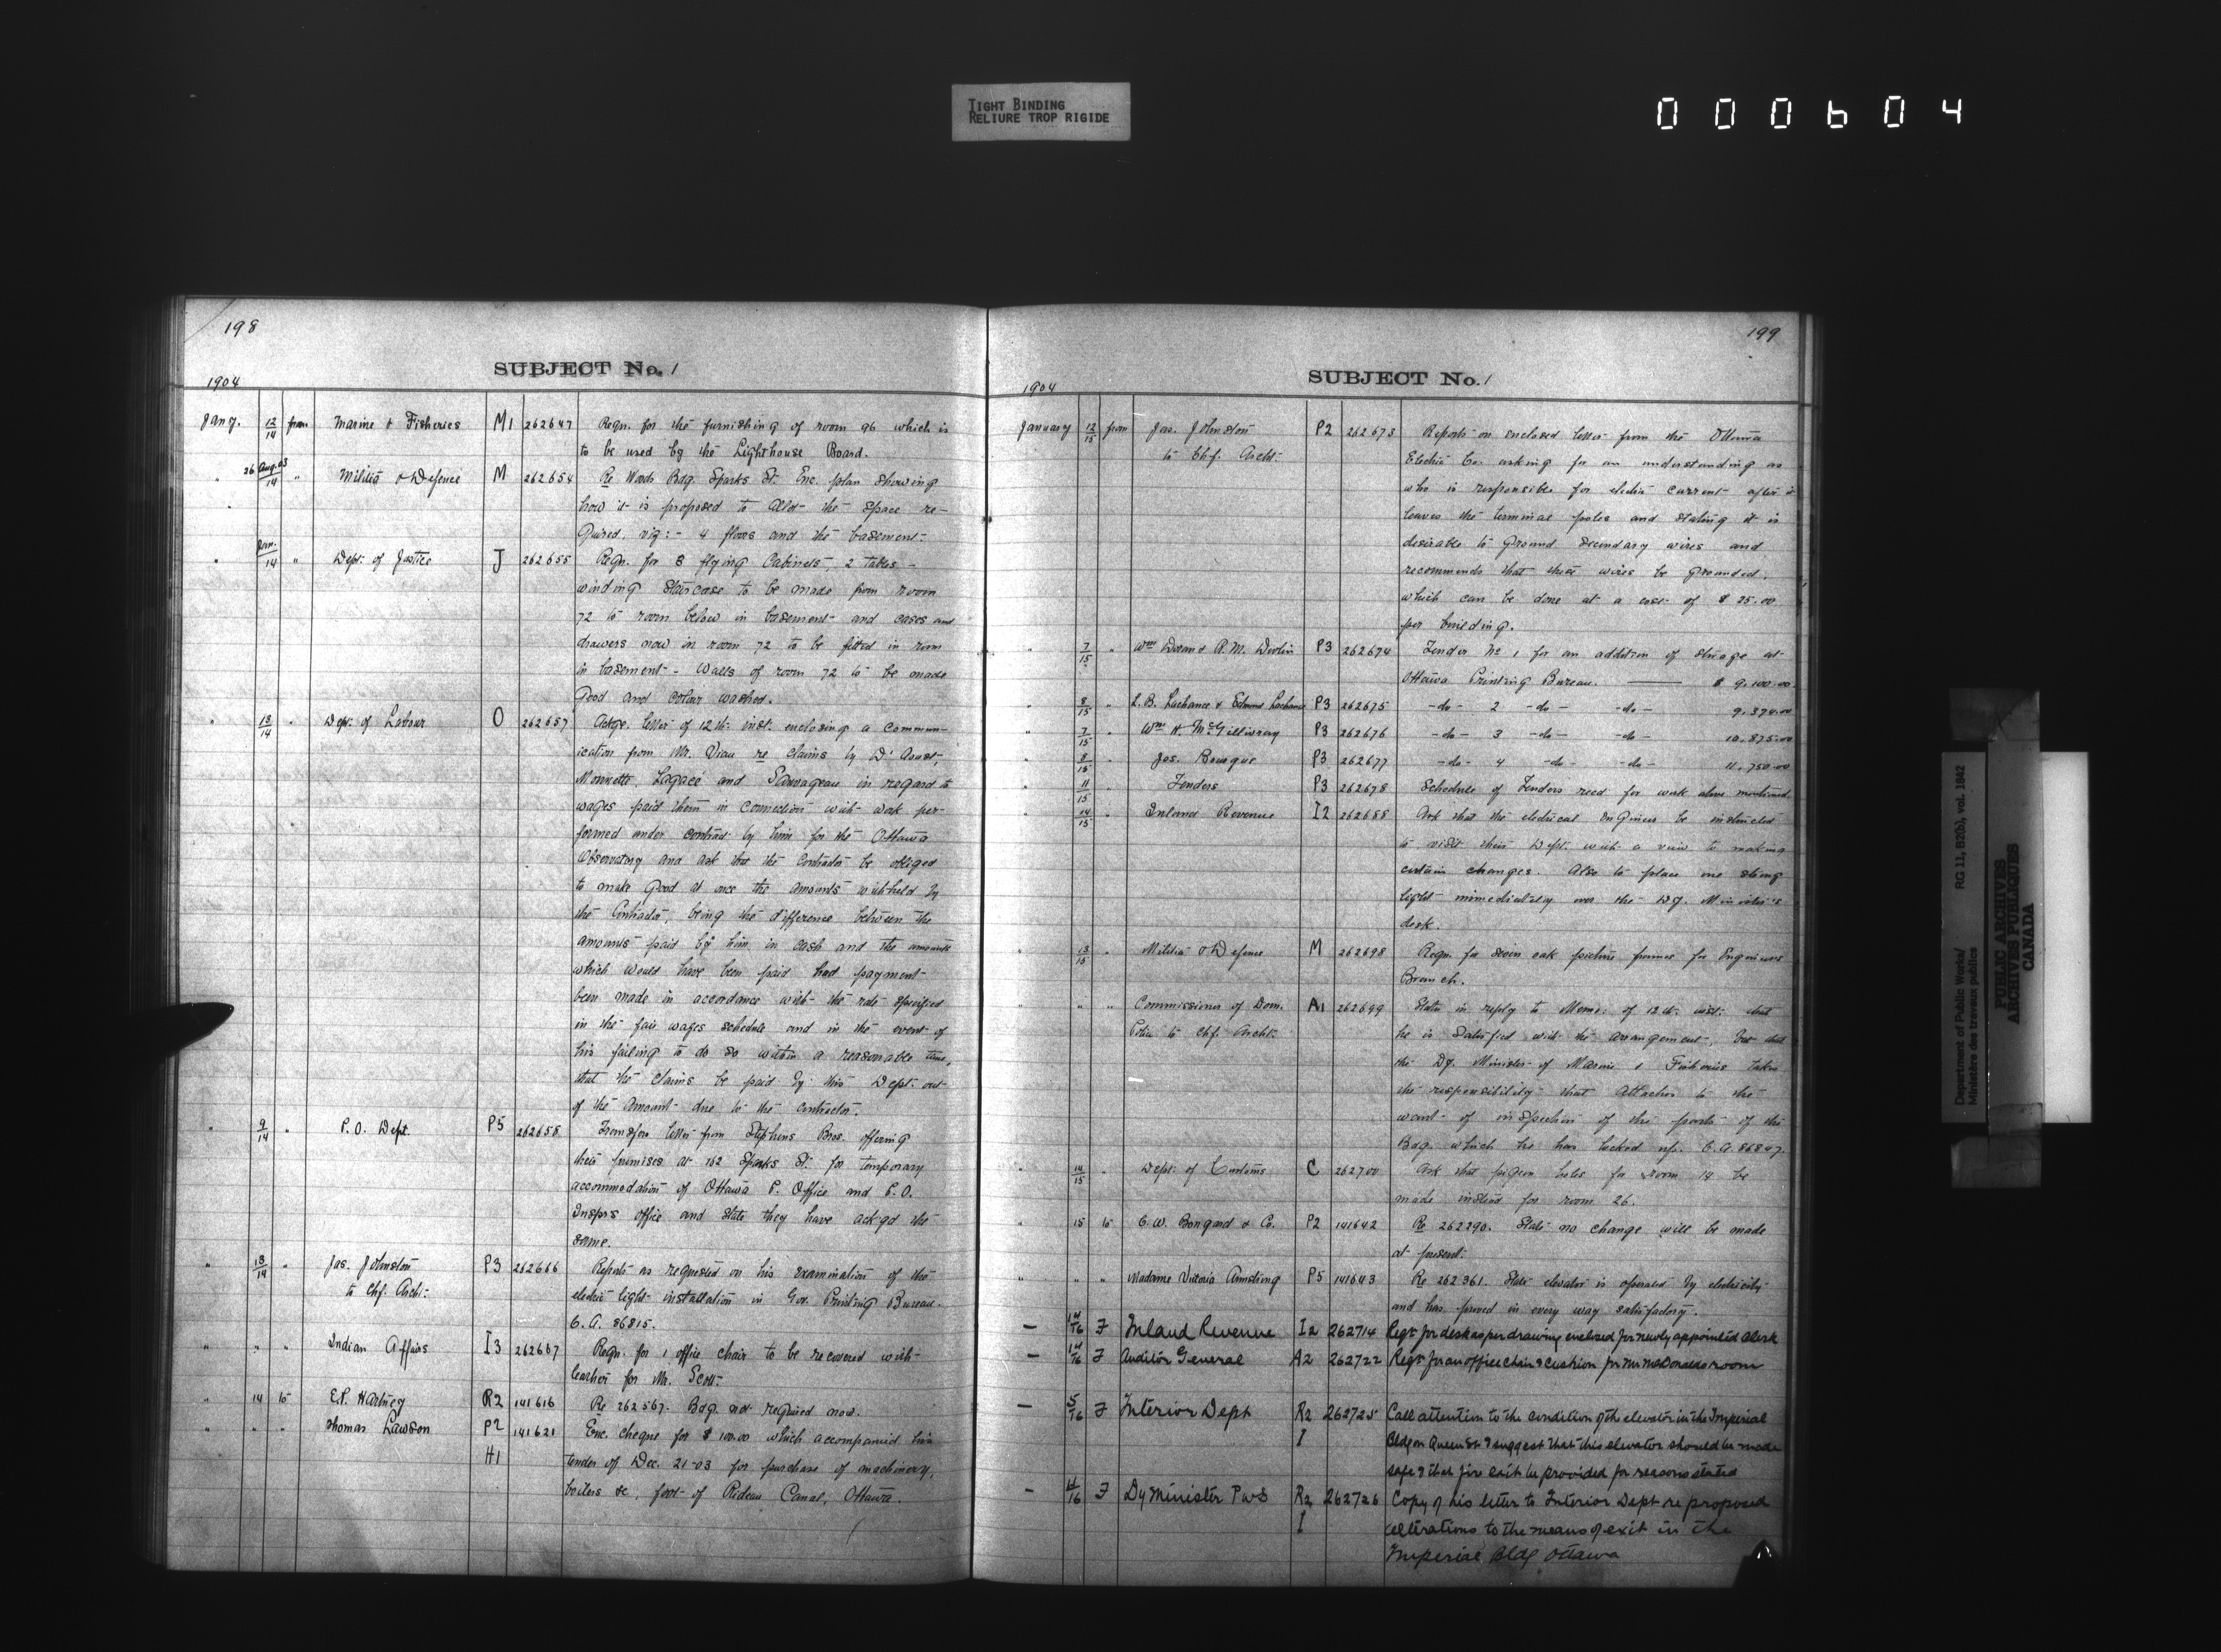 TIGHT BINDING
RELIURE TROP RIGIDE
000604
198
SUBJECT No. 1
1904
Jany. 12/14 from Marine & Fisheries M1 262647 Reqn. for the furnishing of room 96 which is
to be used by the Lighthouse Board.
" 26 Aug. 03/14 " Militia & Defence M 262654 Re Woods Bdg. Sparks St. Enc. plan showing
how it is proposed to allot the space re-
quired, viz:- 4 floors and the basement-
" Jan./14 " Dept. of Justice J 262655 Reqn. for 8 flying Cabinets, 2 tables -
winding staircase to be made from room
72 to room below in basement and cases and
drawers now in room 72 to be fitted in room
in basement - Walls of room 72 to be made
good and colour washed.
" 13/14 " Dept. of Labour O 262657 Ackge. letter of 12th. inst. enclosing a commun-
ication from Mr. Viau re claims by D'Aoust,
Monnette, Lagacé and Sauvageau in regard to
wages paid them in connection with work per-
formed under contract by him for the Ottawa
Observatory and ask that the Contractor be obliged
to make good at once the amounts withheld by
the Contractor, being the difference between the
amounts paid by him in cash and the amounts
which would have been paid had payment
been made in accordance with the rate specified
in the fair wages schedule and in the event of
his failing to do so within a reasonable time,
that the claims be paid by this Dept. out
of the amount due to the contractor.
" 9/14 " P. O. Dept. P5 262658 Transfer letter from Stephens Bros. offering
their premises at 162 Sparks St. for temporary
accommodation of Ottawa P. Office and P.O.
Insprs office and state they have ackgd the
same.
" 13/14 " Jas. Johnston P3 262666 Reports as requested on his examination of the
to Chf. Archt. electric light installation in Gov. Printing Bureau.
C. A. 86815.
" " " Indian Affairs I3 262667 Reqn. for 1 office chair to be recovered with
leather for Mr. Scott.
" 14 to E.P. Hartney R2 141616 Re 262567. Bdg. not required now.
" " " Thomas Lawson P2 141621 Enc. cheque for $100.00 which accompanied his
H1 tender of Dec. 21-03 for purchase of machinery,
boilers &c, foot of Rideau Canal, Ottawa.
199
SUBJECT No. 1
1904
January 12/15 from Jas. Johnston P2 262673 Reports on enclosed letter from the Ottawa
to Chf. Archt. Electric Co. asking for an understanding as
who is responsible for electric current after it
leaves the terminal poles and stating it is
desirable to ground secondary wires and
recommends that these wires be grounded,
which can be done at a cost of $25.00
per building.
" 7/15 " Wm Doran & R.M. Devlin P3 262674 Tender No 1 for an addition of storage at
Ottawa Printing Bureau. $ 9,100.00
" 8/15 " L.B. Lachance & Edmond Lachance P3 262675 -do- 2 -do- -do- 9,374.00
" 7/15 " Wm H. McGillivray P3 262676 -do- 3 -do- -do- 10,875.00
" 8/15 " Jos. Bourque P3 262677 -do- 4 -do- -do- 11,750.00
" 11/15 " Tenders P3 262678 Schedule of Tenders recd for work above mentioned
" 14/15 " Inland Revenue I2 262688 Ask that the electrical engineer be instructed
to visit their Dept. with a view to making
certain changes. Also to place one strong
light immediately over the Dy. Minister's
desk.
" 13/15 " Militia & Defence M 262698 Reqn. for seven oak picture frames for Engineers
Branch.
" " " Commissioner of Dom. A1 262699 States in reply to Memo. of 12th. inst. that
Police to Chf. Archt. he is satisfied with the arrangement, but that
the Dy. Minister of Marine & Fisheries takes
the responsibility that attaches to the
want of inspection of the parts of the
Bdg. which he has locked up. C.A. 86847.
" 14/15 " Dept. of Customs C 262700 Ask that pigeon holes for room 19 be
made instead for room 26.
" 15 to C. W. Bongard & Co. P2 141642 Re 262290. State no change will be made
at present.
" " " Madame Victoria Armstrong P5 141643 Re 262361. State elevator is operated by electricity
and has proved in every way satisfactory.
- 14/16 F Inland Revenue I2 262714 Reqs for desk as per drawing enclosed for newly appointed Clerk
- 14/16 F Auditor General A2 262722 Reqs for an office chair & cushion for Mr McDonalds room
- 5/16 F Interior Dept R2 262725 Call attention to the condition of the elevator in the Imperial
I Bldg on Queen St & suggest that this elevator should be made
safe & that fire exit be provided for reasons stated
- 14/16 F Dy Minister PWS R2 262726 Copy of his letter to Interior Dept re proposed
I alterations to the means of exit in the
Imperial Bldg Ottawa
Department of Public Works/
Ministère des travaux publics
RG 11, B2(b), vol. 1842
PUBLIC ARCHIVES
ARCHIVES PUBLIQUES
CANADA